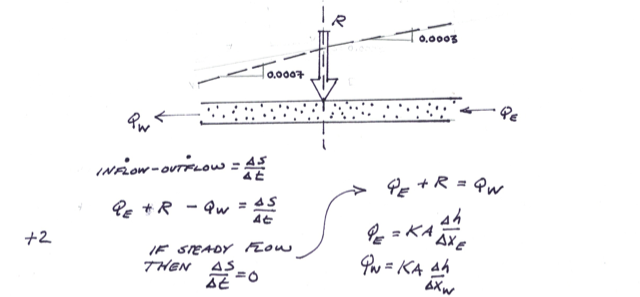 R
0.0003
0.0007
Qw
QE
INFLOW - OUTFLOW = ΔS/Δt
QE + R - Qw = ΔS/Δt
+2
IF STEADY FLOW
THEN ΔS/Δt = 0
QE + R = QW
QE = KA Δh/ΔxE
Qw = KA Δh/ΔxW